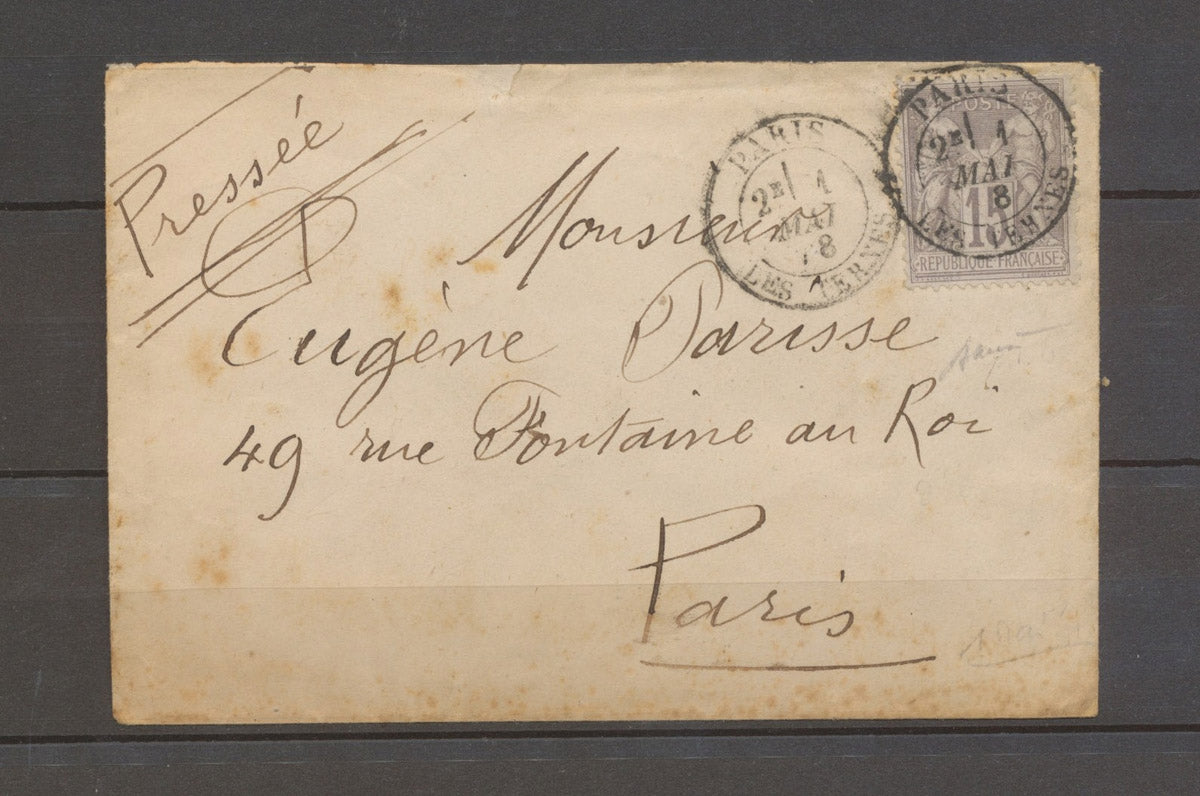 Pressée
Monsieur
Eugène Parisse
49 rue Fontaine au Roi
Paris
PARIS
2E 1
MAI
78
LES TERNES
PARIS
2E 1
MAI
78
LES TERNES
POSTE
15
REPUBLIQUE FRANÇAISE